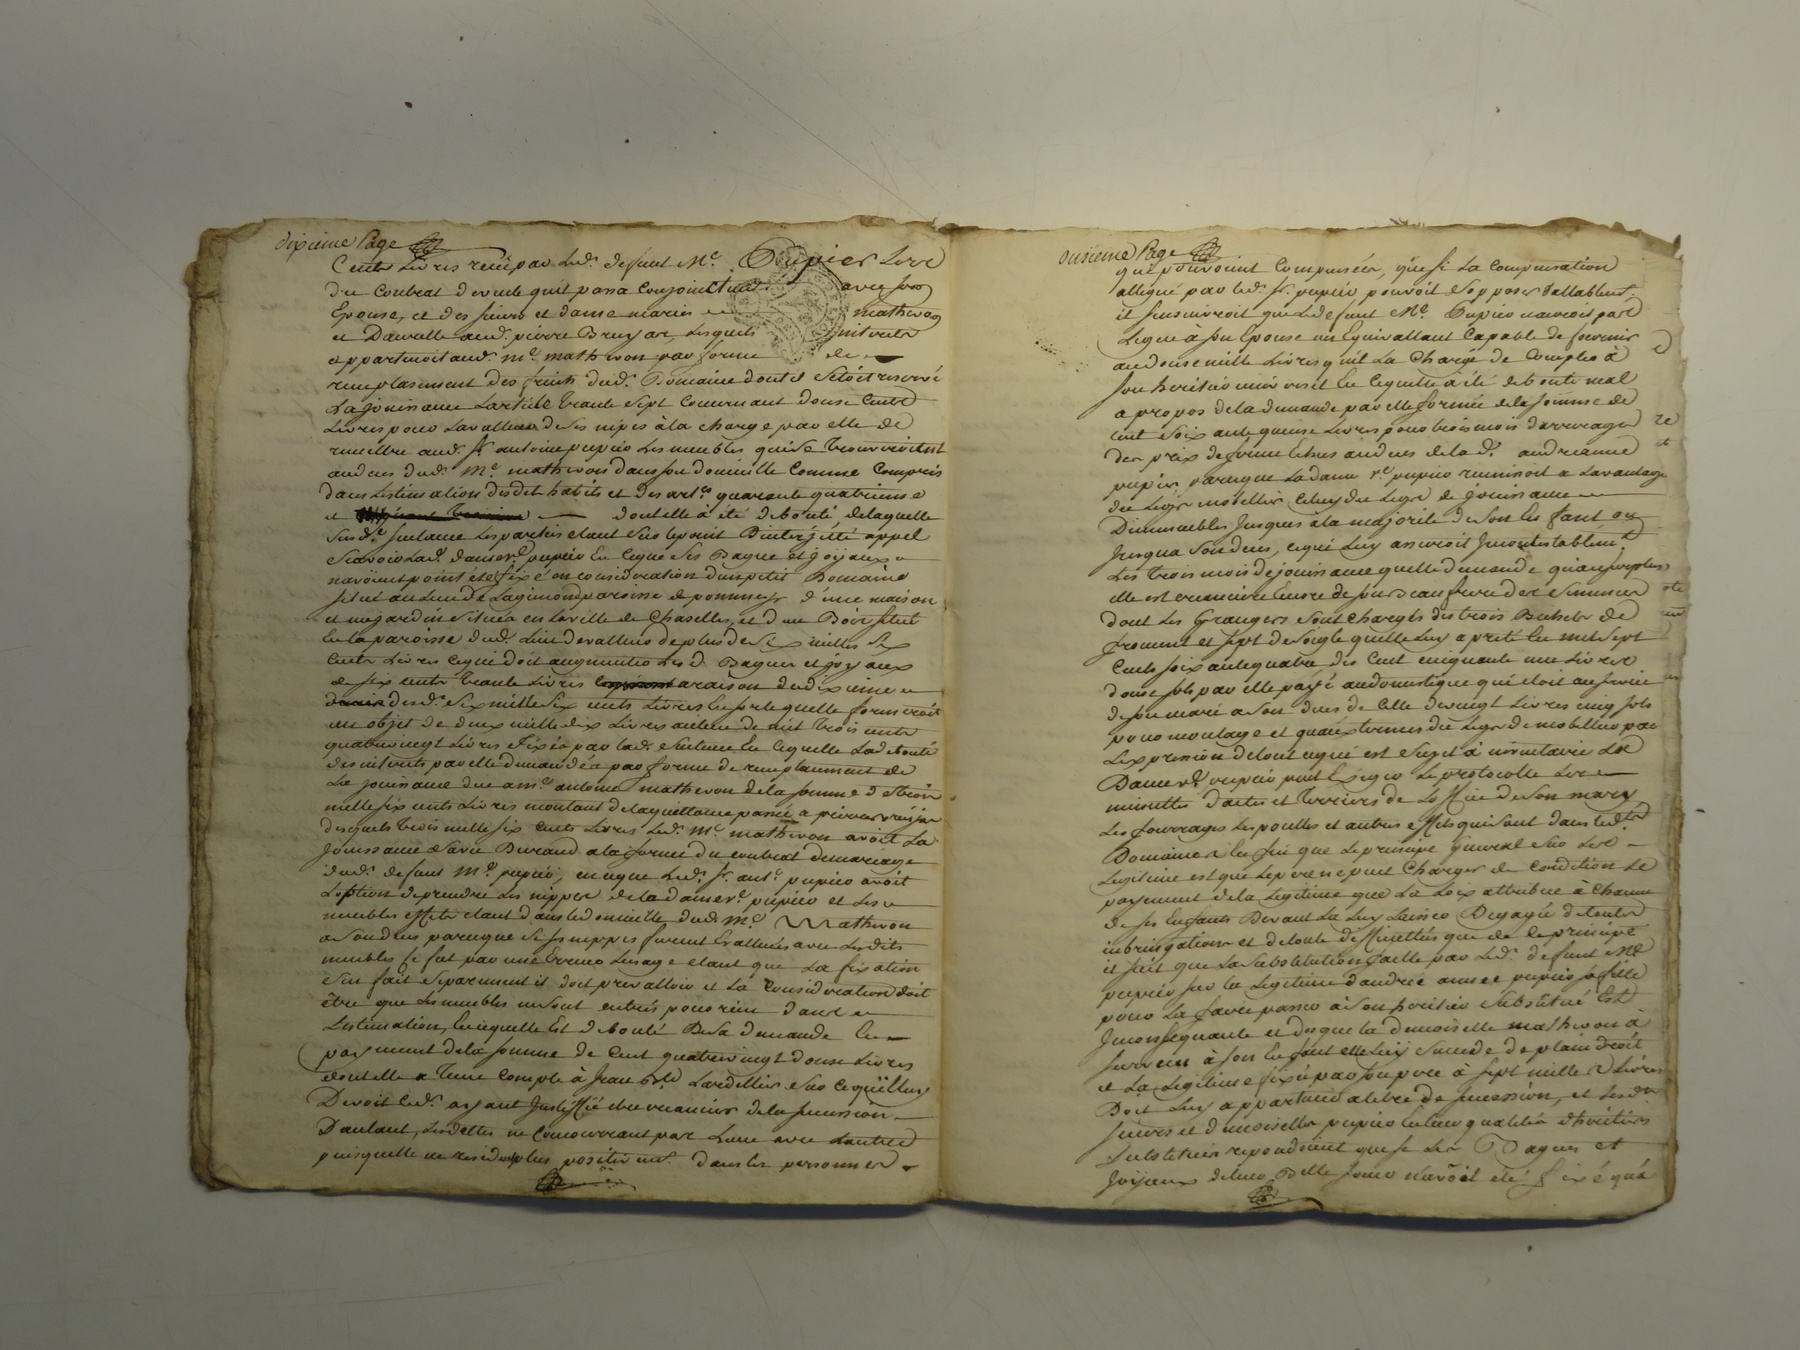 dixieme Page
Cents Livres reçü par Led. defunt Me. Pupier Lors
du Contrat de vente quil passa Conjointement avec son
Epouse, et des sieur et dame mariés mathevon
et Dauvelle aud. pierre Bruyas, Lesquels interets
appartenoit aud. me. mathevon par forme de
remplasement des fruits dud. Domaine dont il setoit reservé
La jouissance Larticle trante sept Concernant douse Cents
Livres pour La valleur de ses nipes à la charge par elle de
remettre aud. sr. antoine pupier Les meubles qui se trouveroient
au deces dud. Me. mathevon dans son domicille Comme Compris
dans Lestimation desdits habits et des artes. quarante quatrieme
et dont elle à été deboutée de laquelle
susde. sentance Les parties etant sur le point Dinterjetté appel
Scavoir Lad. dame ve. pupier En ce que Ses Bague et joyaux
navoient point été fixé en consideration dun petit Domaine
situé au Lieu de Lagimond paroisse de pommeys d'une maison
et un jardin situés en La ville de Chaselles, et d'un Bois situé
En La paroisse dud. Lieu de valleur de plus de Six milles Six
Cents Livres ce qui doit augmenter Les d. Bagues et joyaux
de six cents trante Livres a raison du dixieme
desd. Six mille Six cents Livres En sorte quelle formeroit
un objet de deux mille dix Livres au lieu de mil trois cents
quatrevingt Livres fixés par lad. Sentence En ce quelle La deboute
des interets par elle demandés par forme de remplacement de
La jouissance due a me. antoine mathevon de la somme de trois
mille six cents Livres montant de la quittance passé a pierre
desquels trois mille six cents Livres Led. Me. mathevon avoit La
jouissance Sa vie Durand a la forme du contrat de mariage
dud. defunt Me. pupier, en ce que Led. sr. ante. pupier avoit
Loption de prendre Les nippes de la dame ve. pupier et Les
meubles effets etant dans le domicille dud. Me. Mathevon
a Son deces parceque Si Ses nippes furent Evallués avec Lesdits
meubles ce fut par une Erreur Lusage etant que La fixation
sen fait Separement il doit prevalloir et La Consideration doit
être que Les meubles ne Sont entrés pour rien dans
Lestimation, En ce quelle Est deboutée De Sa demande En
payement de la somme de Cent quatrevingt douse Livres
dont elle a tenu Compte à Jean Bte. Lardellier Sur ce quil luy
Devoit led. ayant Justiffié être creancier de la succession
Dautant, Les dettes ne Concourrant pas Lune avec Lautre
puisquelle ne reside plus positivemt. dans les personnes
onsieme Page
qui pouvoient Compenser, que si La Compensation
allegué par led. sr. pupier pouvoit Sopposer valablemt.
il sensuivroit que Le defunt Me. Pupier nauroit pas
Legué à son Epouse un Equivallant Capable de fournir
au douse mille Livres quil La Charge de Compter à
son heritier universel En ce quelle à été deboute mal
a propos de la demande par elle formée de la somme de
cent soixante quinse Livres pour trois mois darrerages
des prix de ferme Echus au deces de la de. andréanne
pupier parceque La dame ve. pupier reunissoit a Lavantage
du Legs mobillier Celuy du Legs de jouissance
Dimmeubles Jusques à la majorité de Son Enfant ou
Jusqua Son deces, ce qui Luy assuroit Incontestablemt.
Les trois mois de jouissance quelle demande quau surplus
elle est creanciere Encore de plusieurs
dont Les Grangers Sont Chargés des trois Bichets de
froment et sept de Seigle quelle Luy a preté En mil Sept
Cents soixante quatre des Cent cinquante une Livres
douse sols par elle payé au domestique qui etoit au service
de son mari a Son deces de Celle de vingt Livres cinq sols
pour moulage et quaux termes du Legs de mobillier par
Lexpression de tout ce qui est Sujet à inventaire La
Dame ve. pupier peut Exiger Le protocolle Les
minuttes dactes et terriers de Loffice de Son mary
Les fourrages Les poulles et autres effets qui Sont dans led.
Domaine Enfin que Le principe general Sur Les
Legitime est que Le pere ne peut Charger de Condition Le
payement de la Legitime que La Loix attribue à Chacun
de ses Enfants Devant La Luy Laisser Degagée de toutes
et de toute que de Ce principe
il suit que La Substitution faitte par Led. defunt Me.
pupier sur la Legitime dandrée annee pupier sa fille
pour La faire passer à Son heritier Substitué Est
Inconsequante et des que la demoiselle mathevon à
survécu à son Enfant elle Luy Succede de plain droit
et La Legitime fixé par son pere à sept mille Livres
Doit Luy appartenir a titre de succession, et Lesd.
sieurs et demoiselles pupier En leur qualités dhéritiers
Substitués repondoient que si Les Bagues et
Joyaux de leur Belle soeur n'avoit eté fixé qua